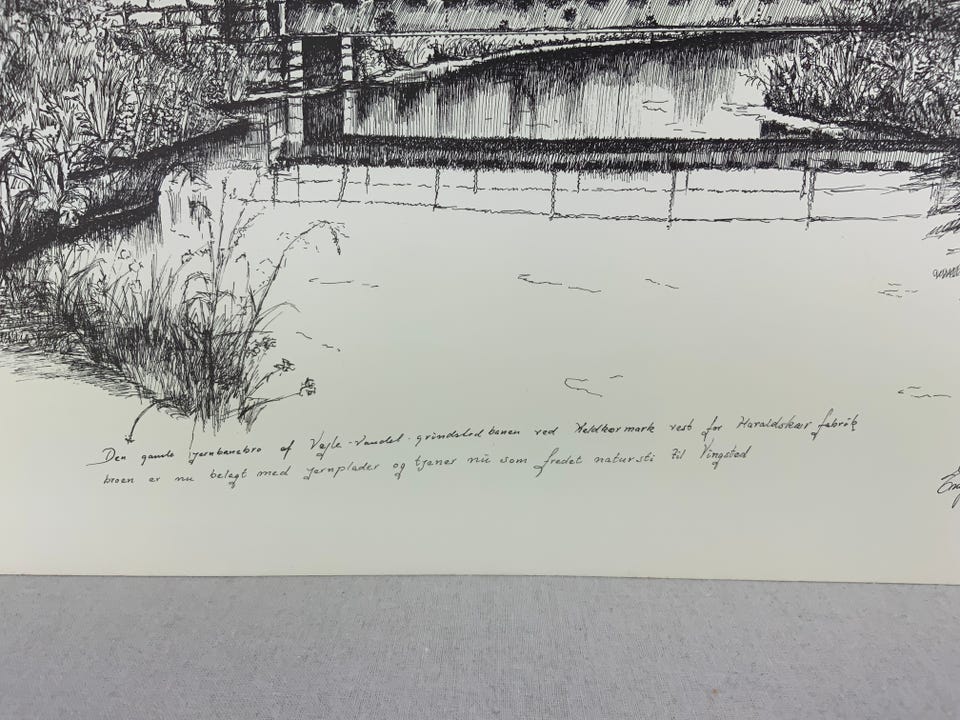 Den gamle jernbanebro af Vejle-Vandel-grindsted banen ved Meldkærmark vest for Haraldskær fabrik
broen er nu belagt med jernplader og tjener nu som fredet natursti til Vingsted